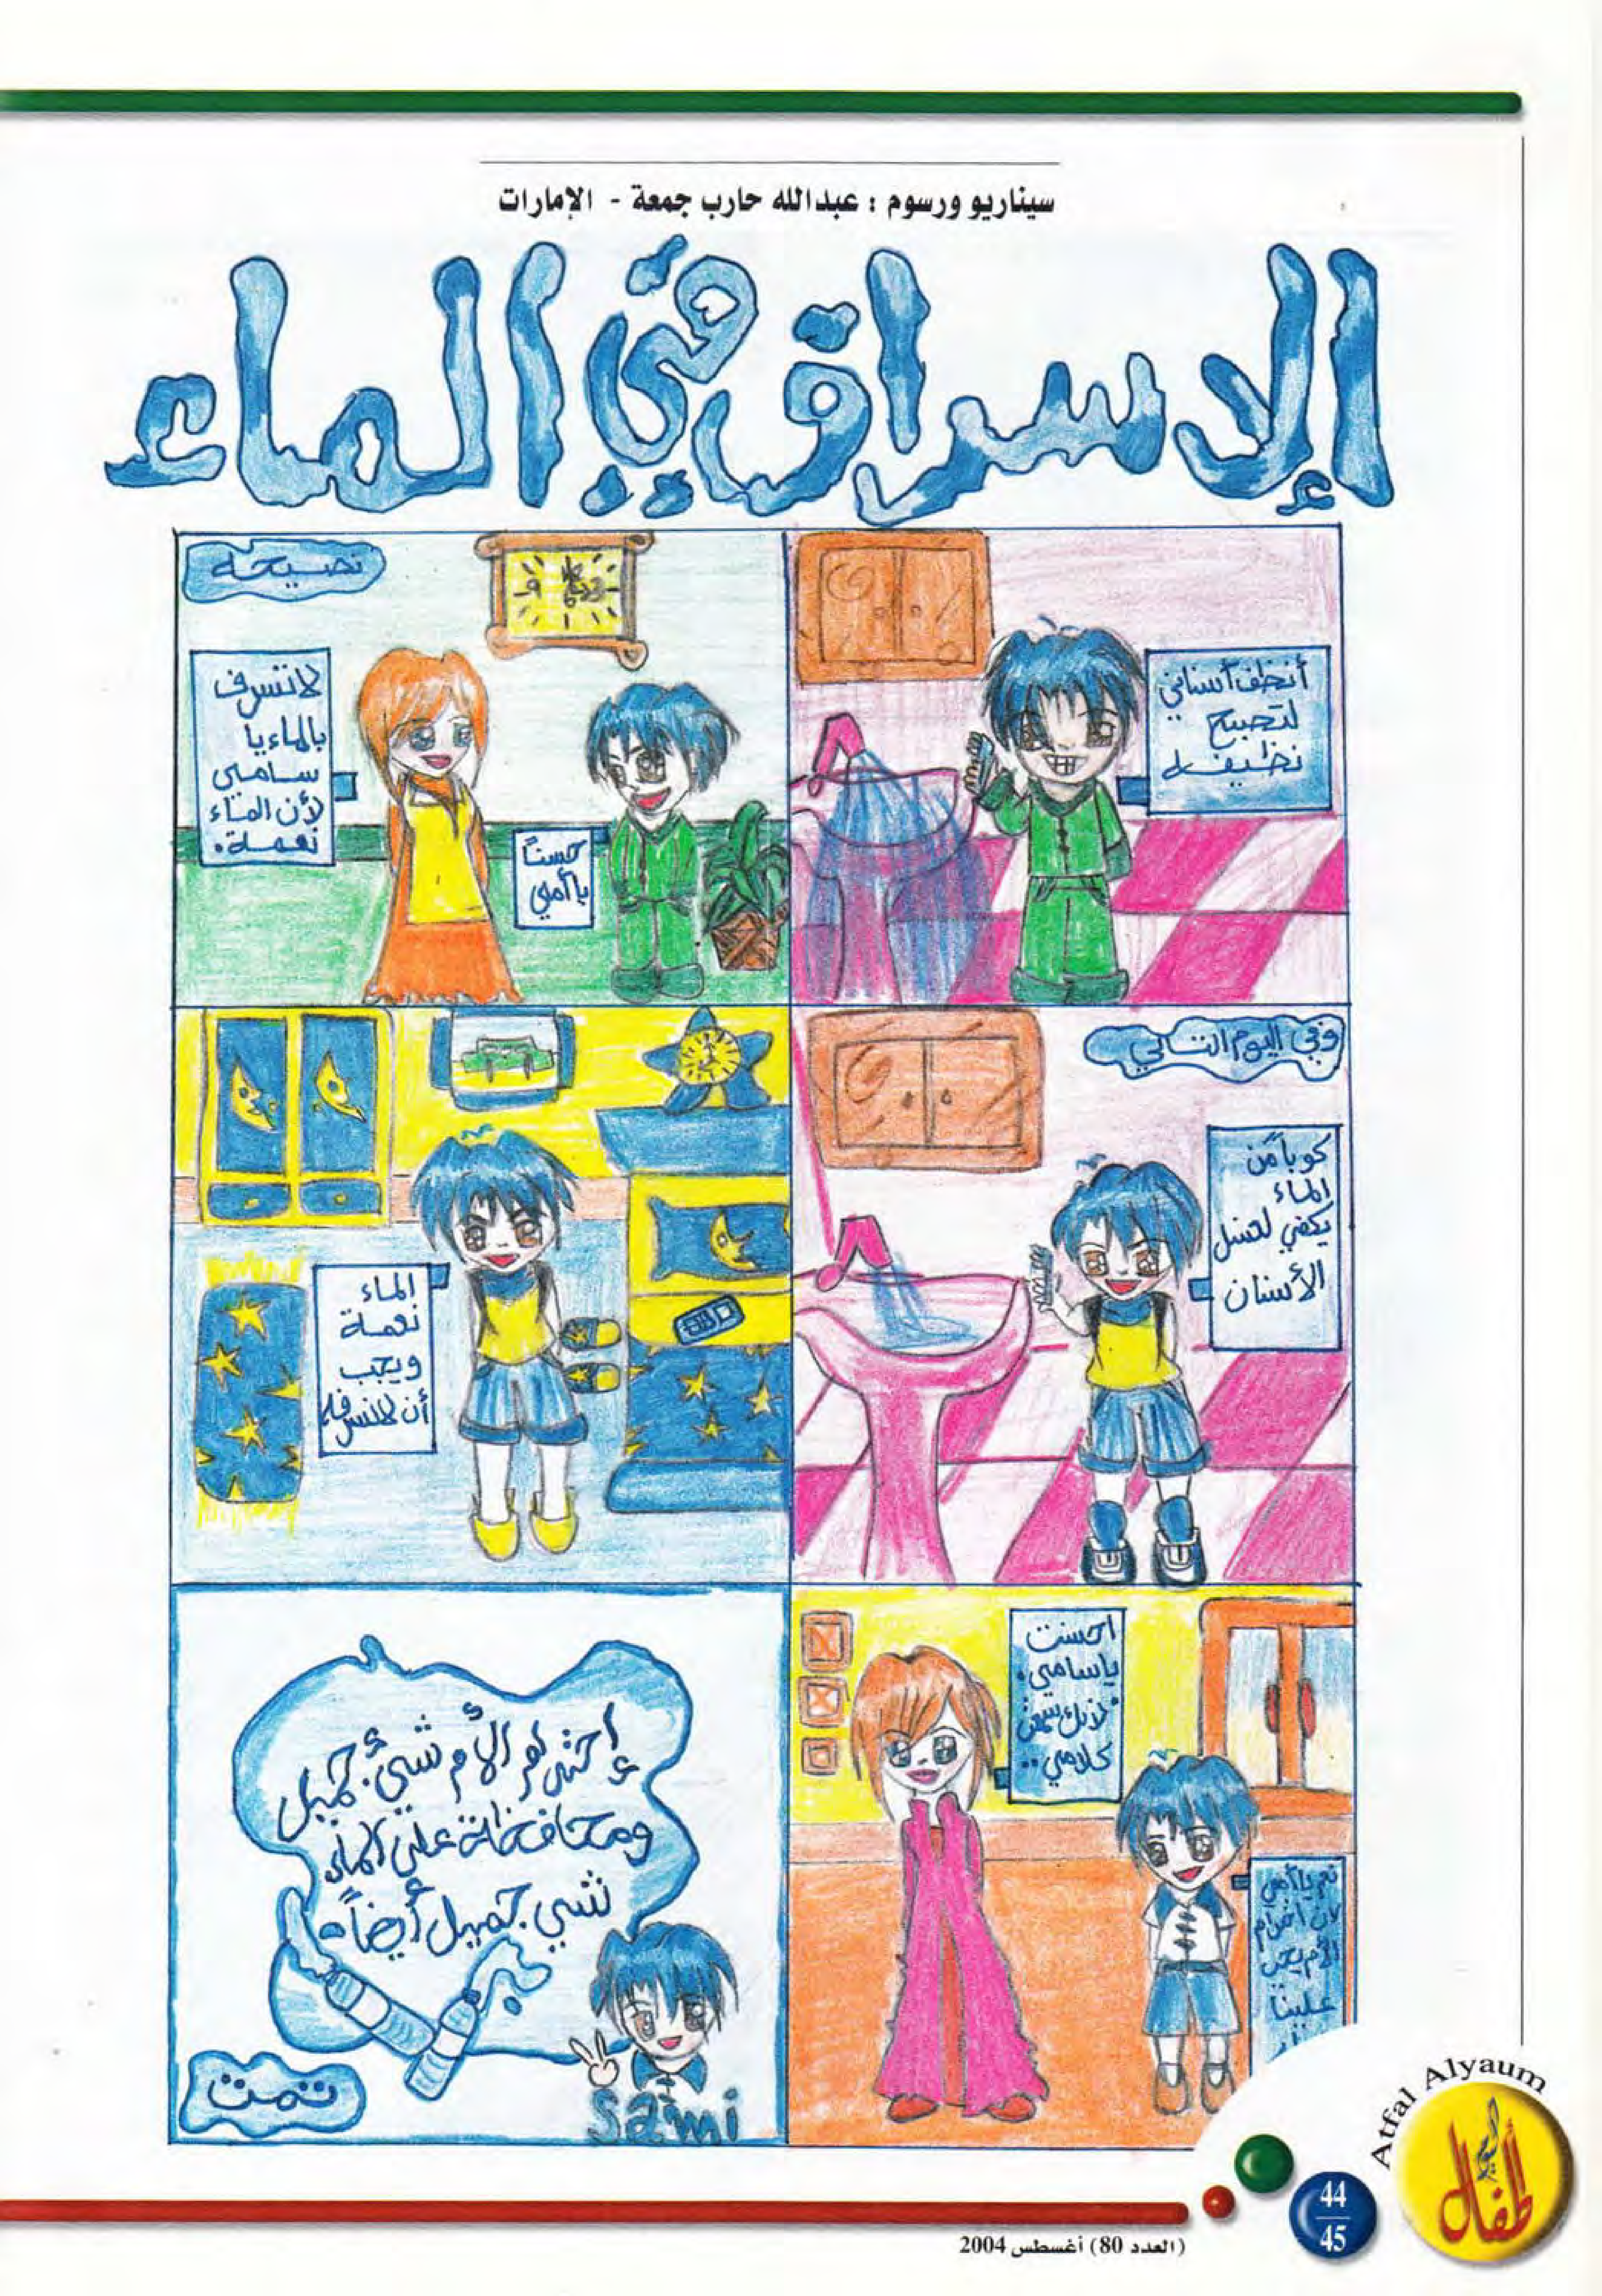 سيناريو ورسوم : عبدالله حارب جمعة - الإمارات
الإسراق في الماء
أنظف أسناني
لتصبح
نظيفة
نصيحة
لا تسرف
بالماء يا
سامي
لأن الماء
نعمة.
حسناً
يا أمي
وفي اليوم التالي
كوباً من
الماء
يكفي لغسل
الأسنان
الماء
نعمة
ويجب
أن لا نسرفه
احسنت
يا سامي.
لأنك سمعت
كلامي..
نعم يا أمي
لأن احترام
الأم يجب
علينا
إحترام الأم شيئ جميل
ومحافظة على الماء
شيئ جميل أيضاً.
Sami
تمت
Atfal Alyaum
أطفال اليوم
44
45
(العدد 80) أغسطس 2004